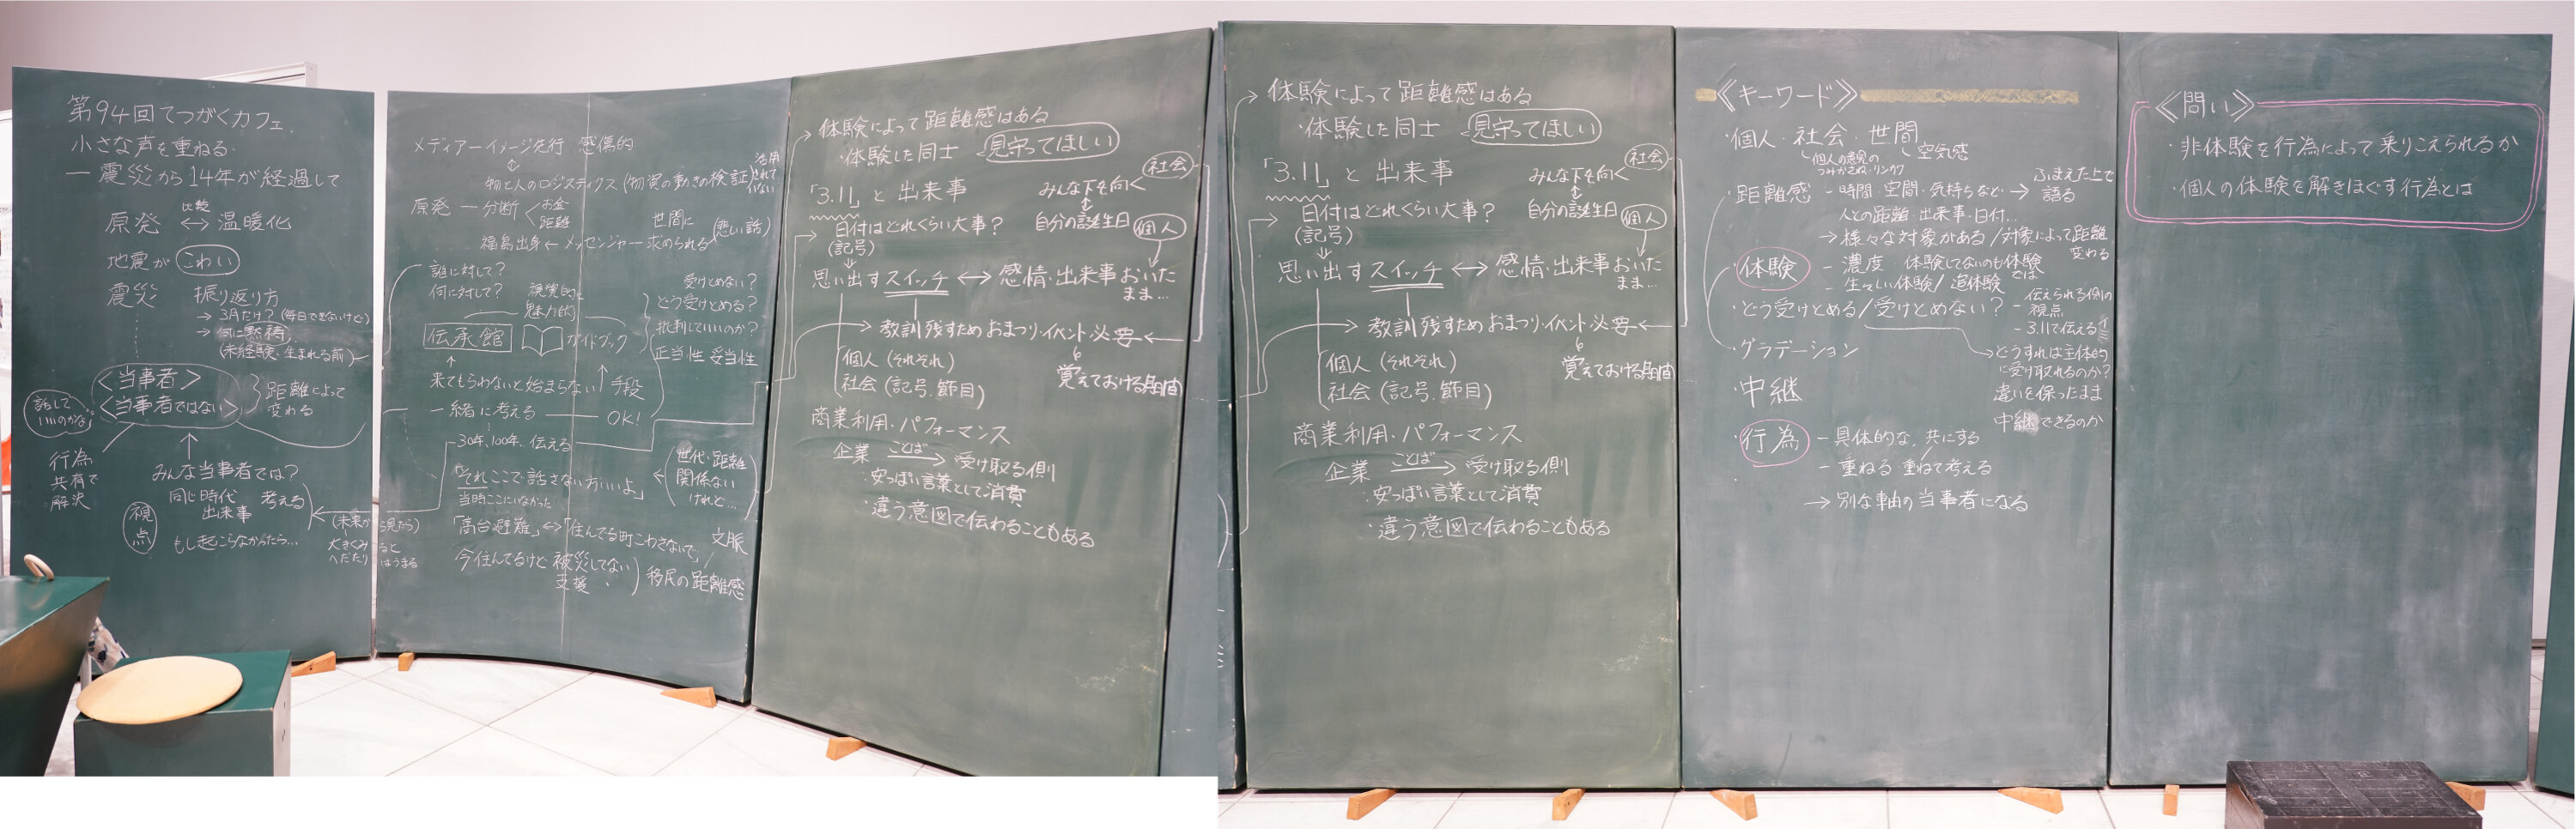 第94回てつがくカフェ
小さな声を重ねる
ー震災から14年が経過して
比較
原発 ↔ 温暖化
地震が こわい
震災 振り返り方
→ 3月だけ? (毎日できないけど)
→ 何に黙祷
(未経験、生まれる前)
<当事者>
<当事者ではない>
距離によって
変わる
話して
いいのかな
行為
共有で
解決
みんな当事者では?
同じ時代
出来事
考える
視点
もし起こらなかったら…
(未来から見たら)
大きくみると
へだたりはうまる
メディアーイメージ先行 感傷的
↕
物と人のロジスティクス (物資の動きの検証)
活用
されて
いない
原発 ー 分断 < お金
距離
福島出身 ← メッセンジャー 求められる
世間に
(悲しい話)
誰に対して?
何に対して?
視覚的に
魅力的
伝承館
ガイドブック
受けとめない?
どう受けとめる?
批判していいのか?
正当性 妥当性
来てもらわないと始まらない
手段
一緒に考える ー OK!
30年、100年、伝える
「それここで話さない方いいよ」
当時ここにいなかった
世代・距離
関係ない
けれど…
「高台避難」↔「住んでる町こわさないで」
文脈
今住んでるけど 被災してない
支援
移民の距離感
体験によって距離感はある
・体験した同士 見守ってほしい
「3.11」と 出来事
社会
みんな下を向く
↕
自分の誕生日
個人
日付はどれくらい大事?
(記号)
思い出すスイッチ ↔ 感情・出来事おいた
まま…
教訓残すため おまつり・イベント必要
覚えておける期間
個人 (それぞれ)
社会 (記号・節目)
商業利用・パフォーマンス
企業 ことば → 受け取る側
・安っぽい言葉として消費
・違う意図で伝わることもある
体験によって距離感はある
・体験した同士 見守ってほしい
「3.11」と 出来事
社会
みんな下を向く
↕
自分の誕生日
個人
日付はどれくらい大事?
(記号)
思い出すスイッチ ↔ 感情・出来事おいた
まま…
教訓残すため おまつり・イベント必要
覚えておける期間
個人 (それぞれ)
社会 (記号・節目)
商業利用・パフォーマンス
企業 ことば → 受け取る側
・安っぽい言葉として消費
・違う意図で伝わることもある
《キーワード》
・個人・社会・世間
個人の意見の
つみかさね・リンク
空気感
・距離感 ー時間・空間・気持ちなど →
ふまえた上で
語る
人との距離・出来事・日付…
→ 様々な対象がある / 対象によって距離
変わる
・体験 ー濃度 体験してないのも体験
では
ー生々しい体験 / 追体験
・どう受けとめる/受けとめない?
ー伝えられる側の
視点
ー3.11で伝える
・グラデーション
どうすれば主体的
に受け取れるのか?
・中継
違いを保ったまま
中継できるのか
・行為 ー具体的な、共にする
ー重ねる・重ねて考える
→ 別な軸の当事者になる
《問い》
・非体験を行為によって乗りこえられるか
・個人の体験を解きほぐす行為とは